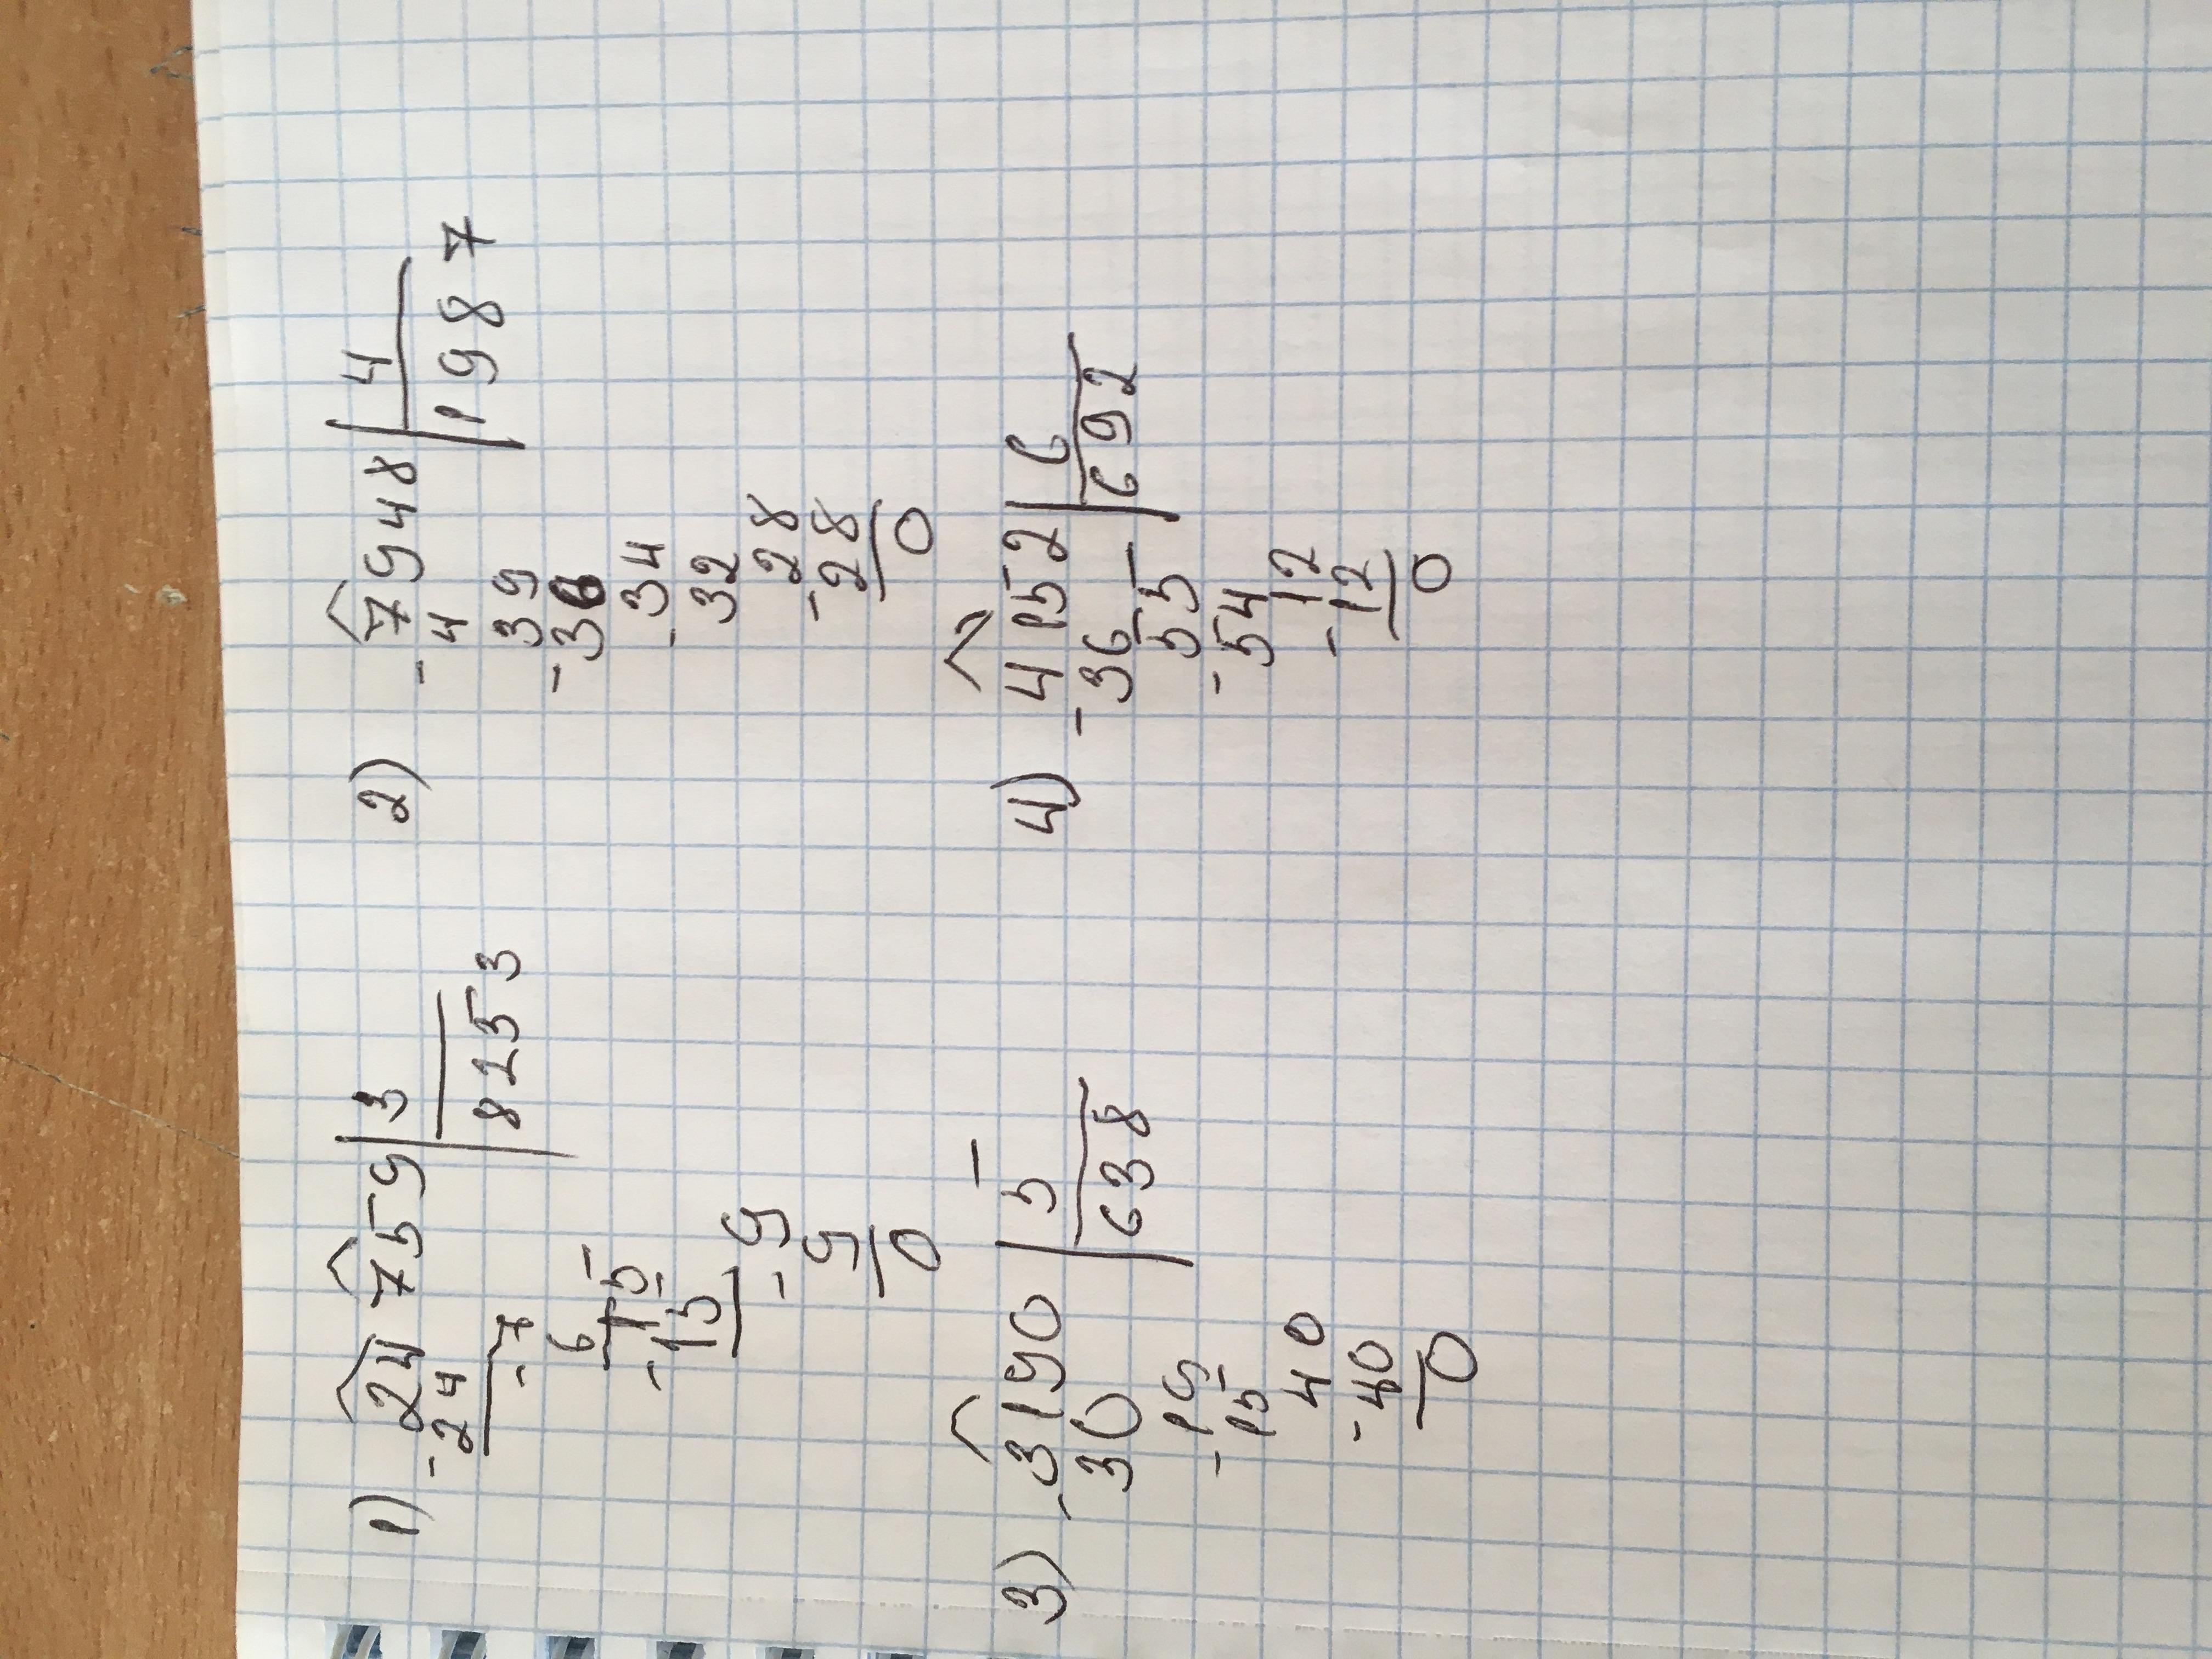 1) 24759 | 3
-24 8253
-7
6
15
-15
-9
9
0
2) 7948 | 4
-4 1987
39
-36
-34
32
28
-28
0
3) -3190 | 5
30 638
-19
15
40
-40
0
4) 4152 | 6
-36 692
55
-54
12
-12
0